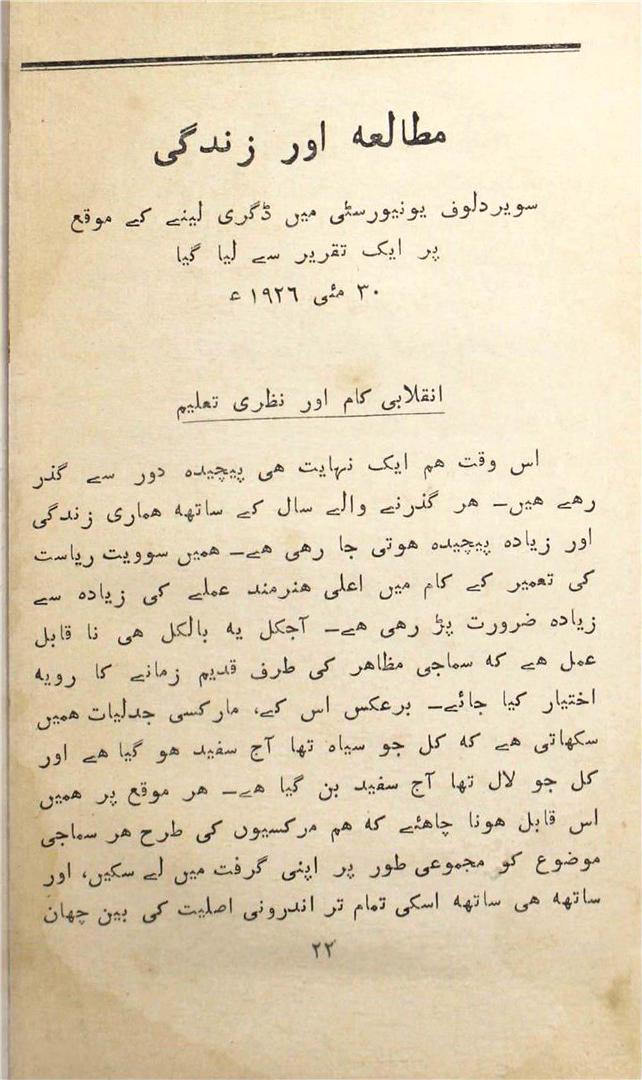 مطالعہ اور زندگی
سویردلوف یونیورسٹی میں ڈگری لینے کے موقع
پر ایک تقریر سے لیا گیا
۳۰ مئی ۱۹۲۶ ء
انقلابی کام اور نظری تعلیم
اس وقت ہم ایک نہایت ہی پیچیدہ دور سے گذر
رہے ہیں۔ ہر گذرنے والے سال کے ساتھ ہماری زندگی
اور زیادہ پیچیدہ ہوتی جا رہی ہے۔ ہمیں سوویت ریاست
کی تعمیر کے کام میں اعلی ہنرمند عملے کی زیادہ سے
زیادہ ضرورت پڑ رہی ہے۔ آجکل یہ بالکل ہی نا قابل
عمل ہے کہ سماجی مظاہر کی طرف قدیم زمانے کا رویہ
اختیار کیا جائے۔ برعکس اس کے، مارکسی جدلیات ہمیں
سکھاتی ہے کہ کل جو سیاہ تھا آج سفید ہو گیا ہے اور
کل جو لال تھا آج سفید بن گیا ہے۔ ہر موقع پر ہمیں
اس قابل ہونا چاہئے کہ ہم مرکسیوں کی طرح ہر سماجی
موضوع کو مجموعی طور پر اپنی گرفت میں لے سکیں، اور
ساتھ ہی ساتھ اسکی تمام تر اندرونی اصلیت کی بین چھان
۲۲